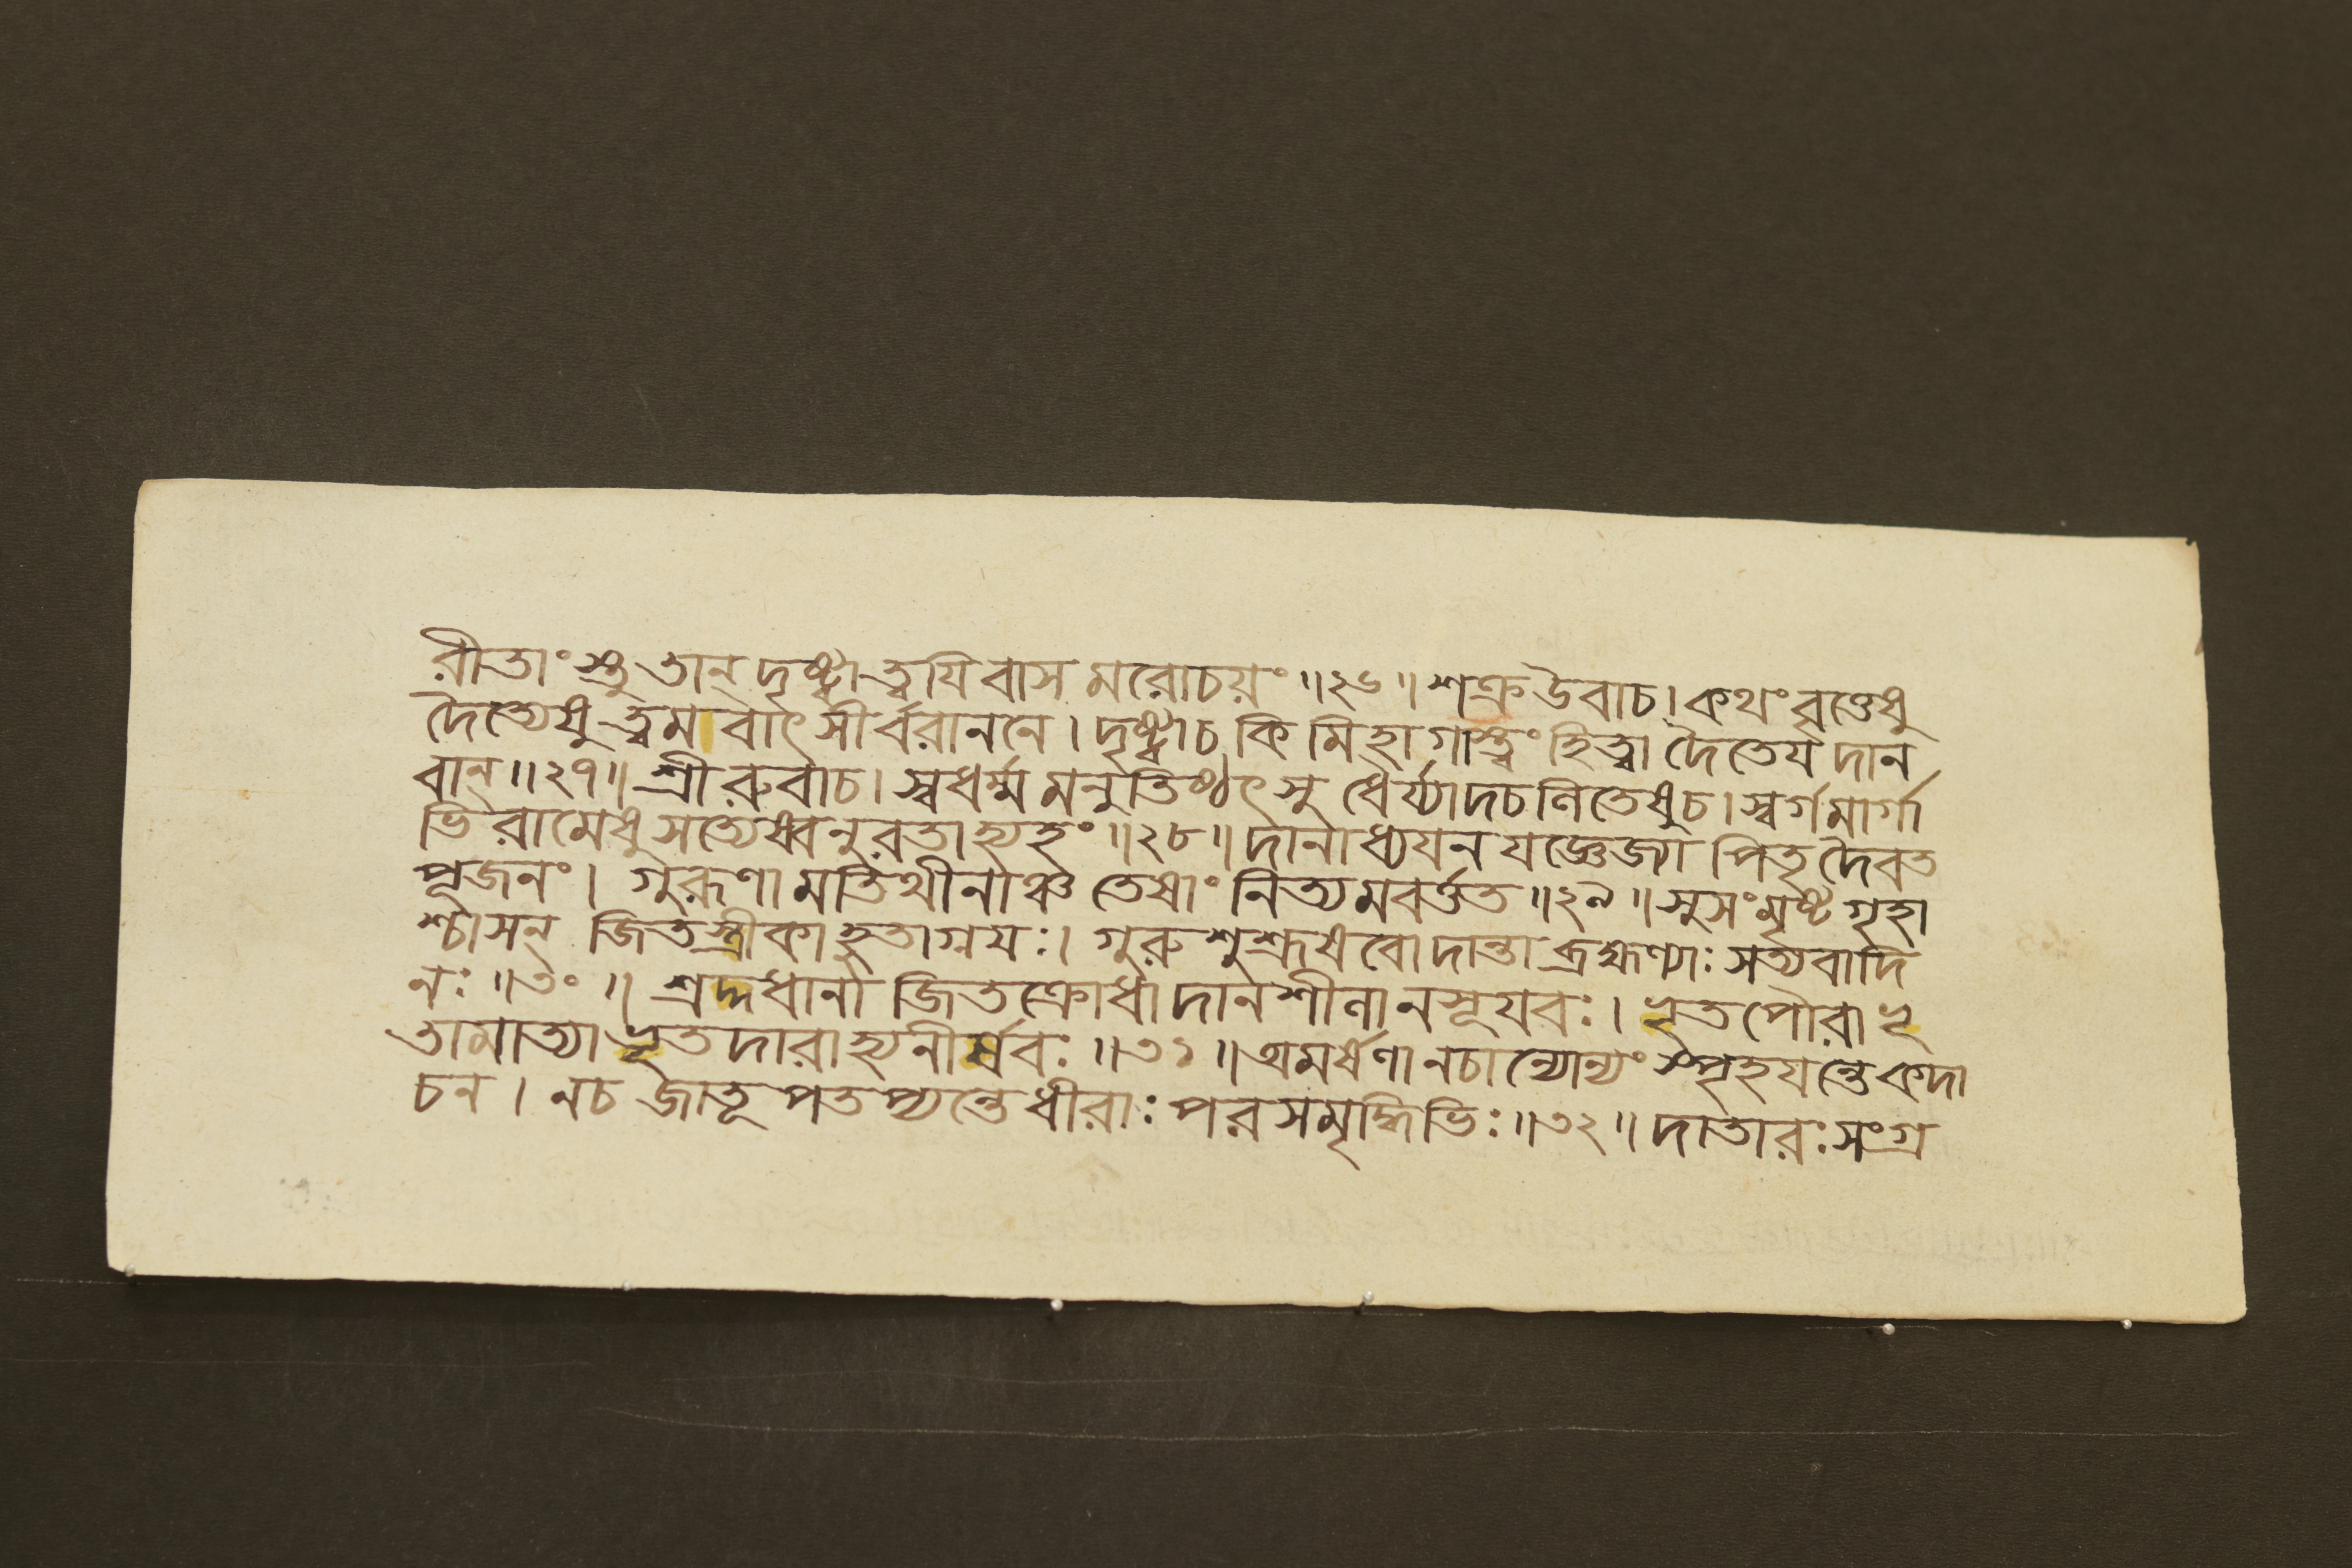 রীতাংস্তু তান্ দৃষ্ট্বা ত্বযি বাস মরোচয়ং ॥২৬॥ শক্র উবাচ। কথং বৃত্তেষু
দৈত্যেষু ত্বম বাৎসীর্বরাননে। দৃষ্ট্বাচ কি মিহাগাস্ত্বং হিত্বা দৈতেয দান
বান্ ॥২৭॥ শ্রীরুবাচ। স্বধর্ম্ম মনুতিষ্ঠৎসু ধৈর্য্যাদচলিতেষুচ। স্বর্গমার্গা
ভি রামেষু সত্যেষ্বনুরতাহ্যহং ॥২৮॥ দানাধ্যযন যজ্ঞেজ্যা পিতৃ দৈবত
পূজনং। গুরূণা মতিথীনাঞ্চ তেষাং নিত্যমবর্ত্তত ॥২৯॥ সুসংমৃষ্ট গৃহা
শ্চাসন্ জিতস্ত্রীকা হুতাগ্নযঃ। গুরুশুশ্রূষবো দান্তা ব্রহ্মণ্যাঃ সত্যবাদি
নঃ ॥৩০॥ শ্রদ্দধানা জিতক্রোধা দানশীলানসূযবঃ। ভৃত পৌরা ভৃ
তামাত্যা ভৃতদারাহ্যনীর্ষবঃ ॥৩১॥ অমর্ষণা নচান্যোন্যং স্পৃহযন্তেকদা
চন। নচ জাতূ পতপ্যন্তে ধীরাঃ পরসমৃদ্ধিভিঃ ॥৩২॥ দাতারঃ সংগ্র